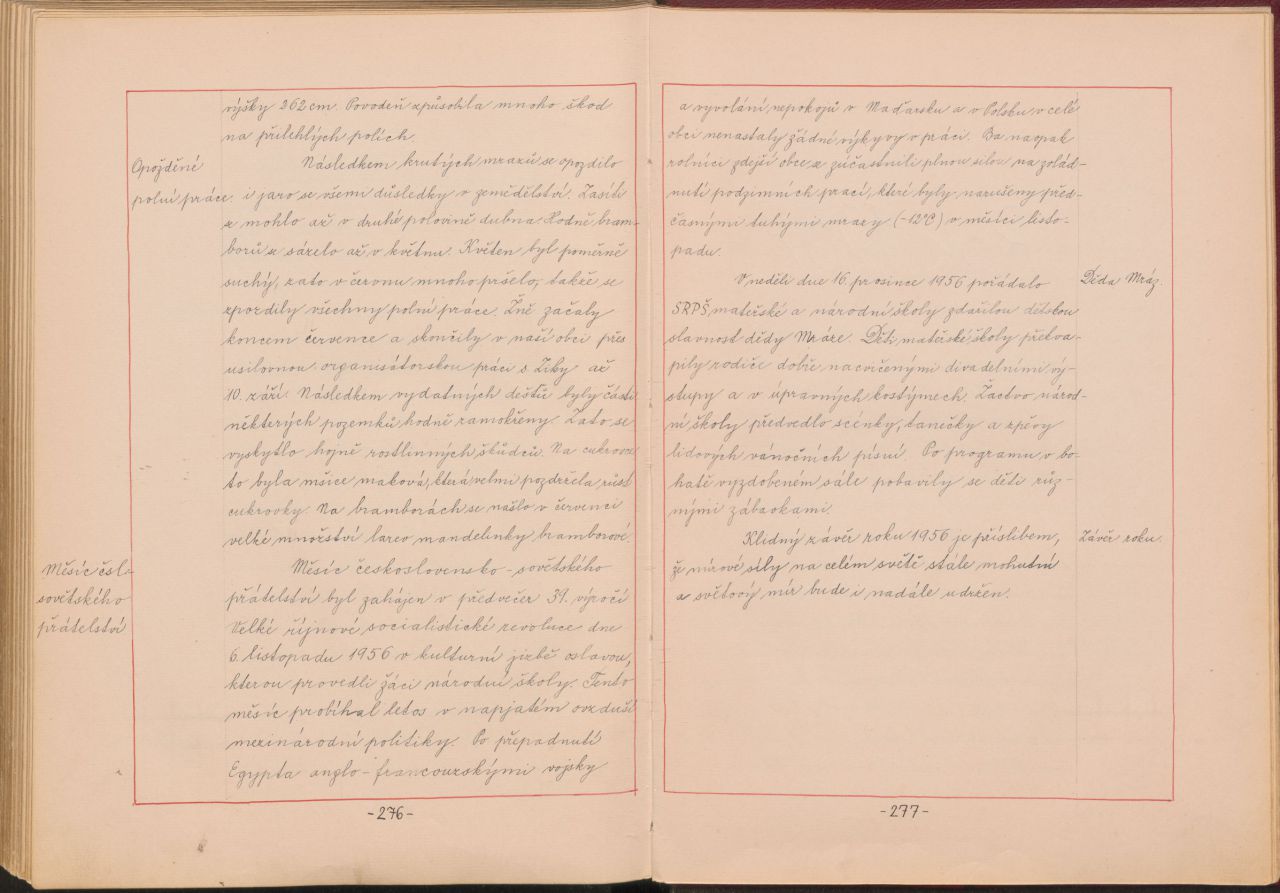 výšky 262 cm. Povodeň způsobila mnoho škod
na přilehlých polích
Opoždění
polní práce.
Následkem krutých mrazů se opozdilo
i jaro se všemi důsledky v zemědělství. Zasíti
z mohlo až v druhé polovině dubna. Hodně bram-
borů z sázelo až v květnu. Květen byl poměrně
suchý, zato v červnu mnoho pršelo, takže se
zpozdily všechny polní práce. Žně začaly
koncem července a skončily v naší obci přes
usilovnou organisátorskou práci s. Ziky až
10. září. Následkem vydatných dešťů byly části
některých pozemků hodně zamokřeny. Zato se
vyskytlo hojně rostlinných škůdců. Na cukrov-
to byla mšice maková, která velmi pozdržela růst
cukrovky. Na bramborách se našlo v červenci
velké množství larev mandelinky bramborové
Měsíc čsl-
sovětského
přátelství
Měsíc československo-sovětského
přátelství byl zahájen v předvečer 39. výročí
Velké říjnové socialistické revoluce dne
6. listopadu 1956 v kulturní jizbě oslavou,
kterou provedli žáci národní školy. Tento
měsíc probíhal letos v napjatém ovzduší
mezinárodní politiky. Po přepadnutí
Egypta anglo-francouzskými vojsky
-276-
a vyvolání nepokojů v Maďarsku a v Polsku v celé
obci nenastaly žádní výkyvy v práci. Ba naopak
rolníci zdejší obce z účastnili plnou silou na zvlád-
nutí podzimních prací, které byly narušeny před-
časnými tuhými mrazy (-12°C) v měsíci listo-
padu.
V neděli dne 16. prosince 1956 pořádalo
Děda Mráz.
SRPŠ mateřské a národní školy zdařilou dětskou
slavnost dědy Mráze. Děti mateřské školy překva-
pily rodiče dobře nacvičenými divadelními vý-
stupy a v úpravných kostýmech. Žactvo národ-
ní školy předvedlo scénky, tanečky a zpěvy
lidových vánočních písní. Po programu v bo-
hatě vyzdobeném sále pobavily se děti růz-
nými zábavkami.
Klidný závěr roku 1956 je příslibem,
Závěr roku.
že mírové síly na celém světě stále mohutní
a světový mír bude i nadále udržen.
-277-